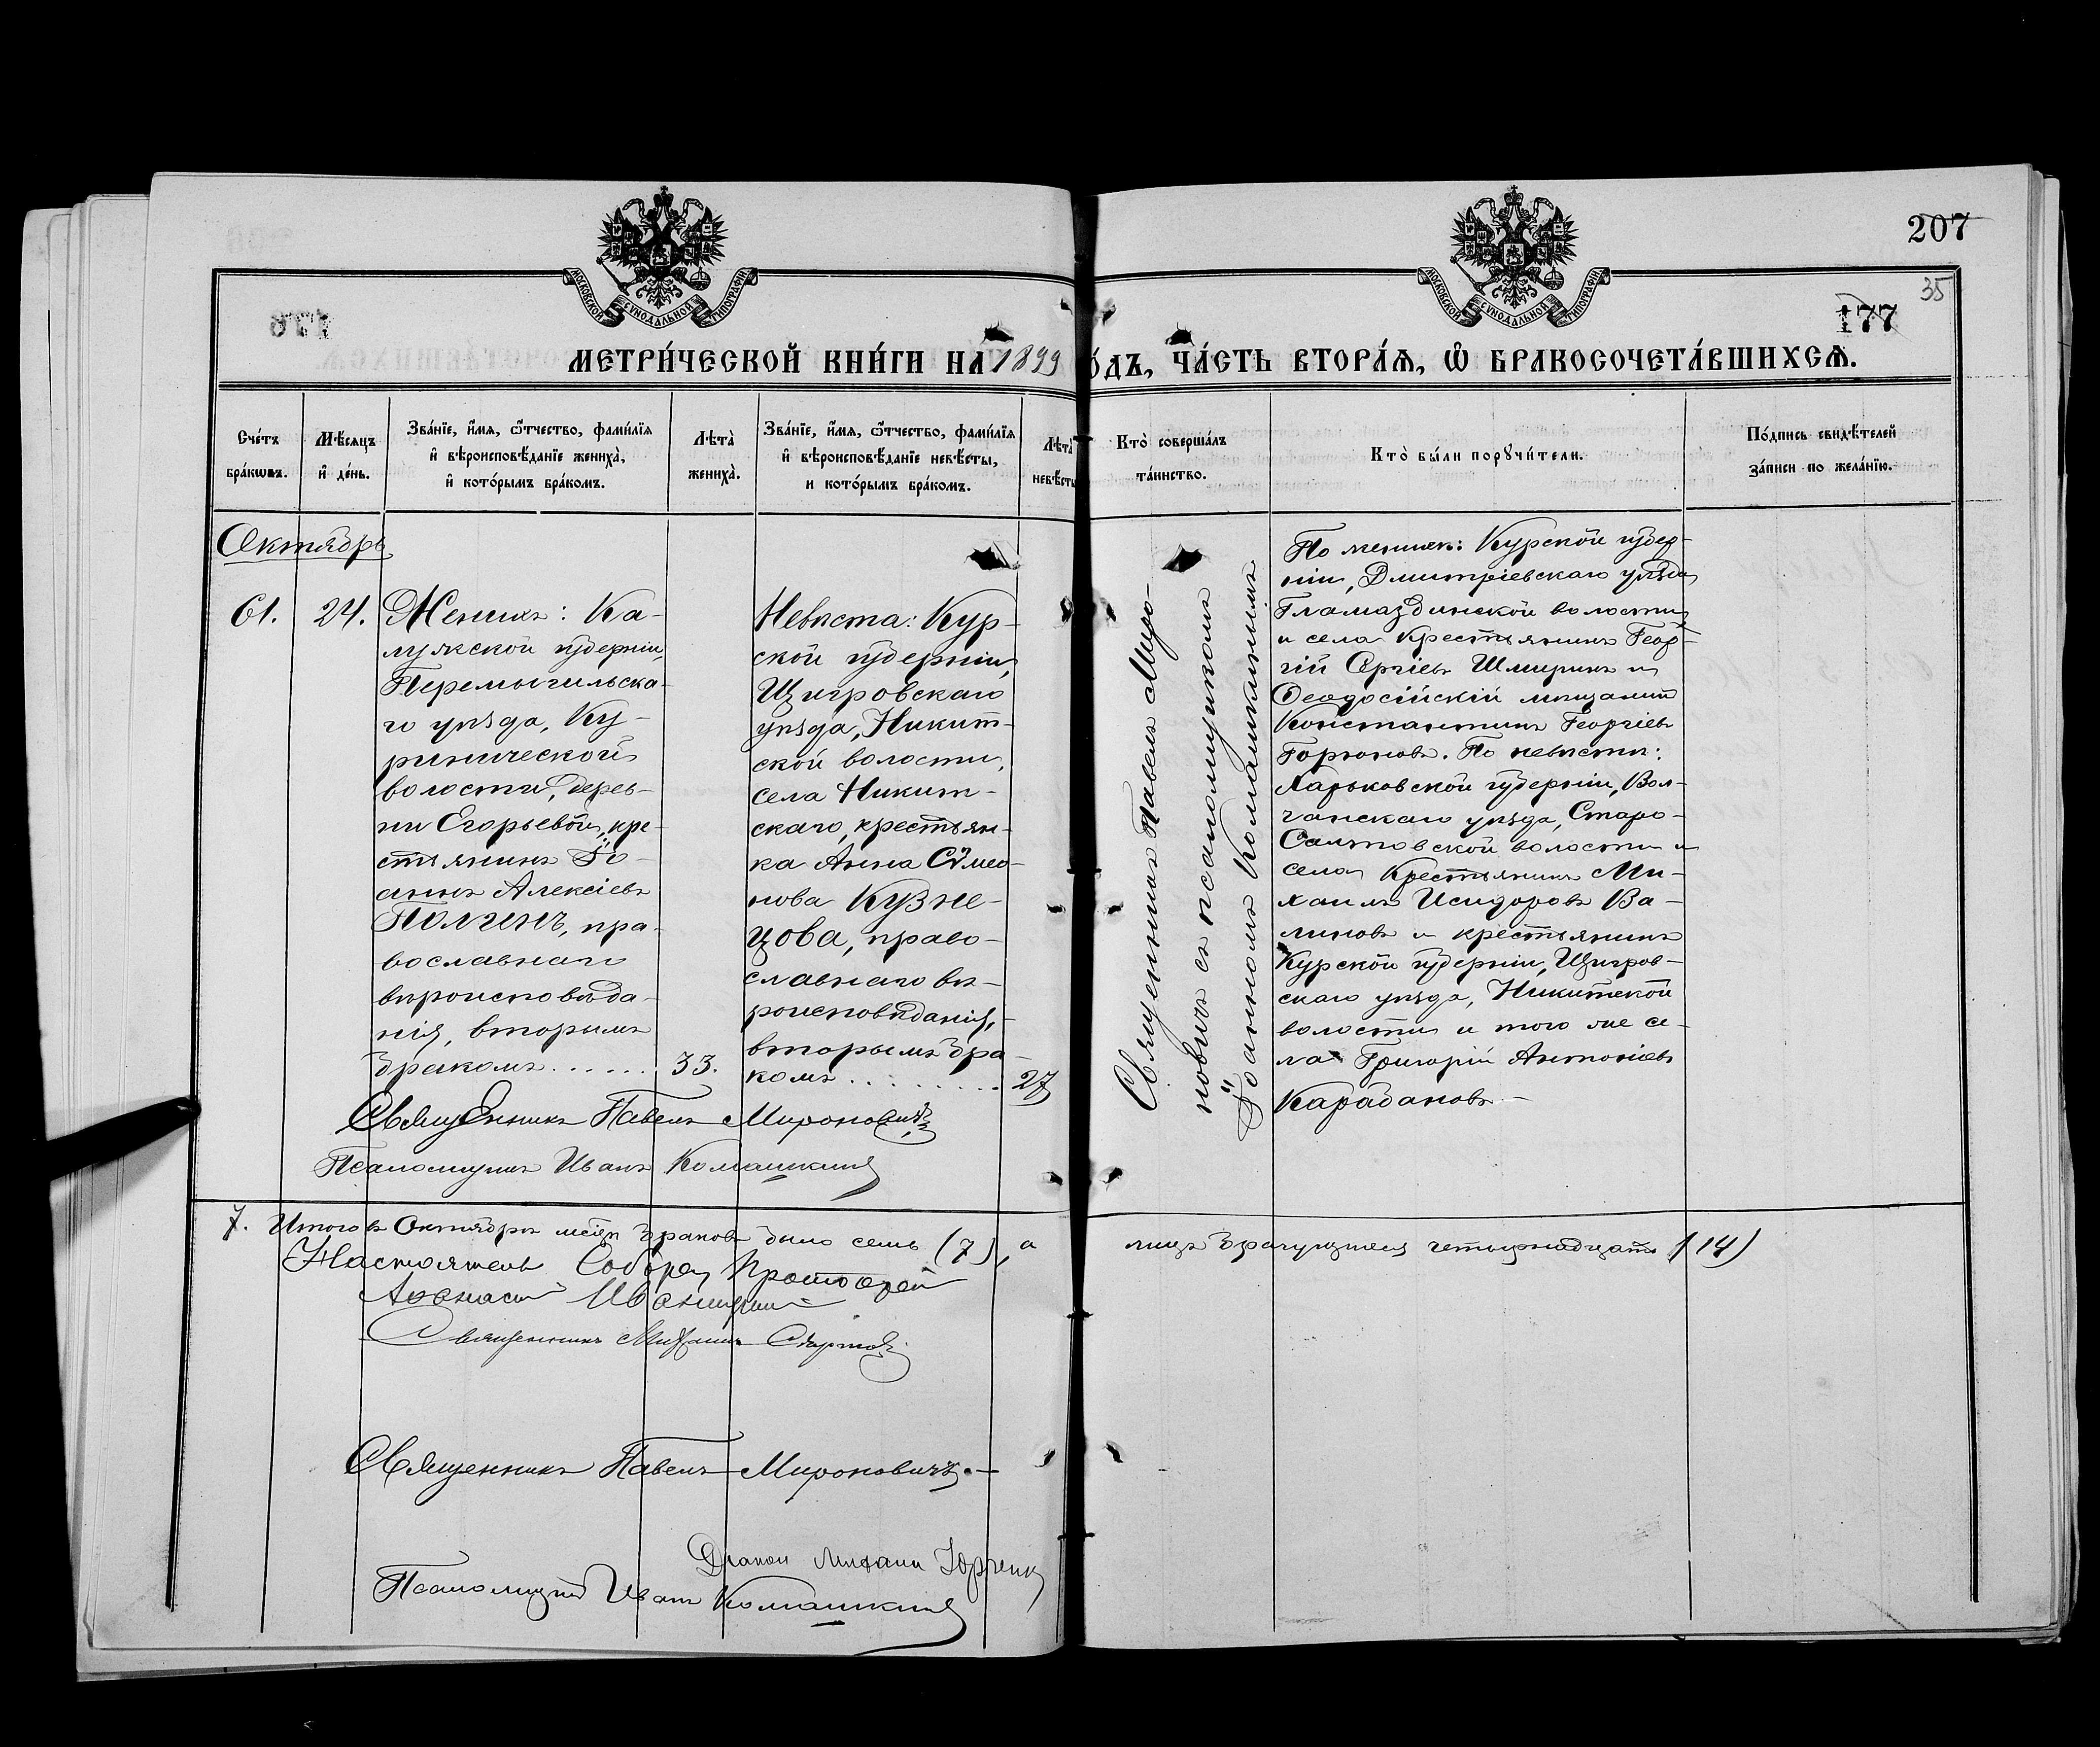 207
35
177
МОСКОВСКОЙ СѴНОДАЛЬНОЙ ТИПОГРАФІИ
МОСКОВСКОЙ СѴНОДАЛЬНОЙ ТИПОГРАФІИ
МЕТРИ́ЧЕСКОЙ КНИ́ГИ НА 1899 О́ДЪ, ЧА́СТЬ ВТОРА́Ѧ, Ѡ҆ БРАКОСОЧЕТА́ВШИХСѦ.
Сче́тъ
бра́кѡвъ.
Мѣ́сяцъ
и҆ де́нь.
Зва́нїе, и҆́мя, ѻ҆́тчество, фами́лїя
и҆ вѣроисповѣ́данїе жениха̀,
и҆ кото́рымъ бра́комъ.
Лѣта̀
жениха̀.
Зва́нїе, и҆́мя, ѻ҆́тчество, фами́лїя
и҆ вѣроисповѣ́данїе невѣ́сты,
и кото́рымъ бра́комъ.
Лѣта̀
невѣ́сты
Кто̀ соверша́лъ
та́инство.
Кто̀ бы́ли порꙋчи́тели.
По́дпись свидѣ́телей
за́писи по жела́нїю.
Октябрь
61.
24.
Женихъ: Ка-
лужской губерніи,
Перемышльска-
го уѣзда, Ку-
ринической
волости, дерев-
ни Егорьевой, кре-
стьянинъ Іо-
аннъ Алексіевъ
Полчинъ, пра-
вославнаго
вѣроисповѣда-
нія, вторымъ
бракомъ......
33.
Невѣста: Кур-
ской губерніи,
Щигровскаго
уѣзда, Никит-
ской волости,
села Никит-
скаго, крестьян-
ка Анна Сѵмео-
нова Кузне-
цова, право-
славнаго вѣ-
роисповѣданія,
вторымъ бра-
комъ.........
27
Священникъ Павелъ Миро-
новичъ съ псаломщикомъ
Іоанномъ Комашкинымъ
По женихѣ: Курской губер-
ніи, Дмитріевскаго уѣзда
Гламаздинской волости
и села крестьянинъ Геор-
гій Сергіевъ Шмиринъ и
Ѳеодосійскій мѣщанинъ
Константинъ Георгіевъ
Горюновъ. По невѣстѣ:
Харьковской губерніи, Вол-
чанскаго уѣзда, Старо-
Салтовской волости и
села крестьянинъ Ми-
хаилъ Исидоровъ Ва-
линовъ и крестьянинъ
Курской губерніи, Щигров-
скаго уѣзда, Никитской
волости и того же се-
ла Григорій Антоніевъ
Карабановъ.
Священникъ Павелъ Мироновичъ
Псаломщикъ Иванъ Комашкинъ
7. Итого въ Октябрѣ мѣсяцѣ браковъ было семь (7), а лицъ брачущихся четырнадцать (14)
Настоятель Собора, Протоіерей
Аѳанасій
Священникъ Михаилъ
Священникъ Павелъ Мироновичъ.
Діаконъ Михаилъ Юрченко
Псаломщикъ Иванъ Комашкинъ